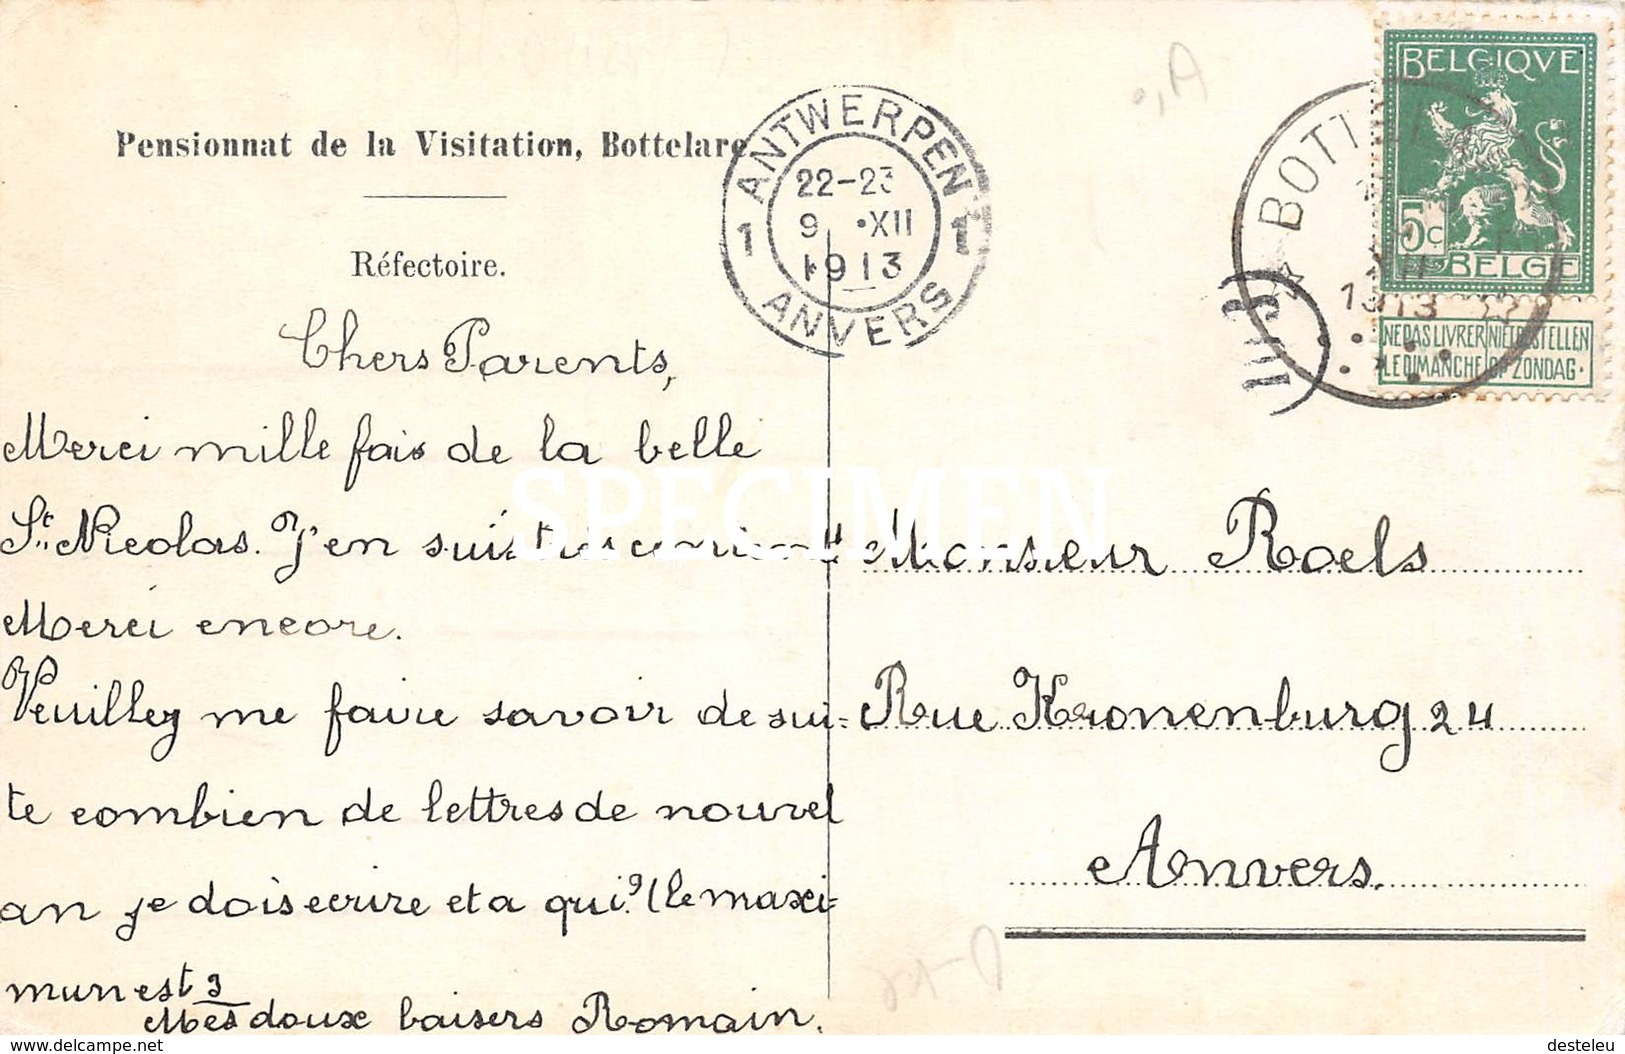 Pensionnat de la Visitation, Bottelare
Réfectoire.
Chers Parents,
Merci mille fois de la belle
St. Nicolas. J'en suis très
Merci encore.
Veuillez me faire savoir de sui-
te combien de lettres de nouvel
an je dois ecrire et a qui? (le maxi-
mum est 3
Mes doux baisers Romain.
ANTWERPEN
22-23
9 •XII
1913
1 1
ANVERS
BELGIQVE
5c
BELGIE
NE PAS LIVRER NIET BESTELLEN
LE DIMANCHE OP ZONDAG.
Monsieur Roels
Rue Kronenburg 24
Anvers.
SPECIMEN
delcampe.net
desteleu